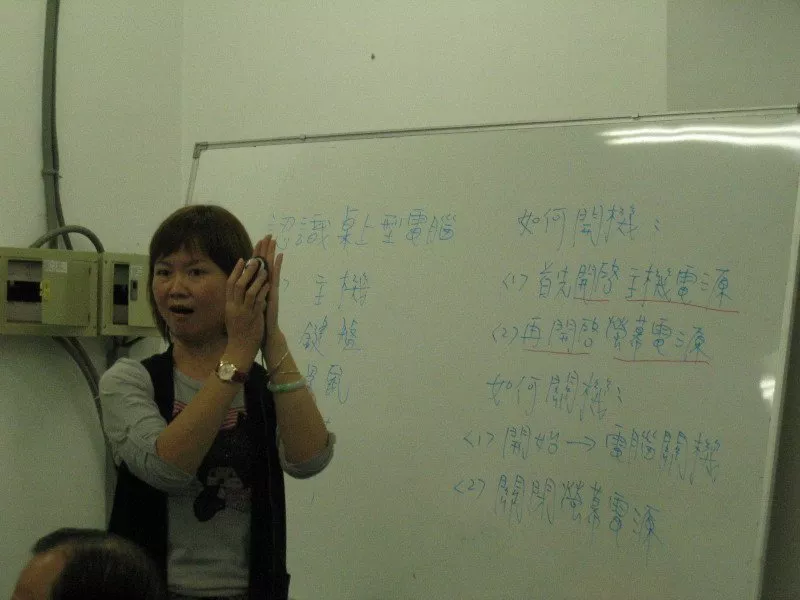 認識桌上型電腦
主機
鍵盤
如何開機：
<1> 首先開啓主機電源
<2> 再開啓螢幕電源
如何關機：
<1> 開始→電腦關機
<2> 關閉螢幕電源